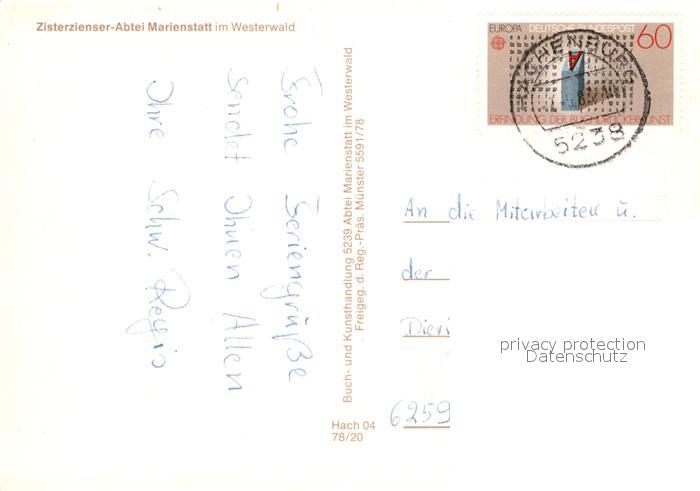 Zisterzienser-Abtei Marienstatt im Westerwald
EUROPA DEUTSCHE BUNDESPOST 60
ERFINDUNG DER BUCHDRUCKERKUNST
HACHENBURG
5238
Frohe Feriengrüße
sendet Ihnen Allen
Ihre Schw. Regio
Buch- und Kunsthandlung 5239 Abtei Marienstatt im Westerwald
Freigeg. d. Reg.-Präs. Münster 5591/78
An die Mitarbeiter u.
der
Dieri
privacy protection
Datenschutz
6259
Hach 04
78/20